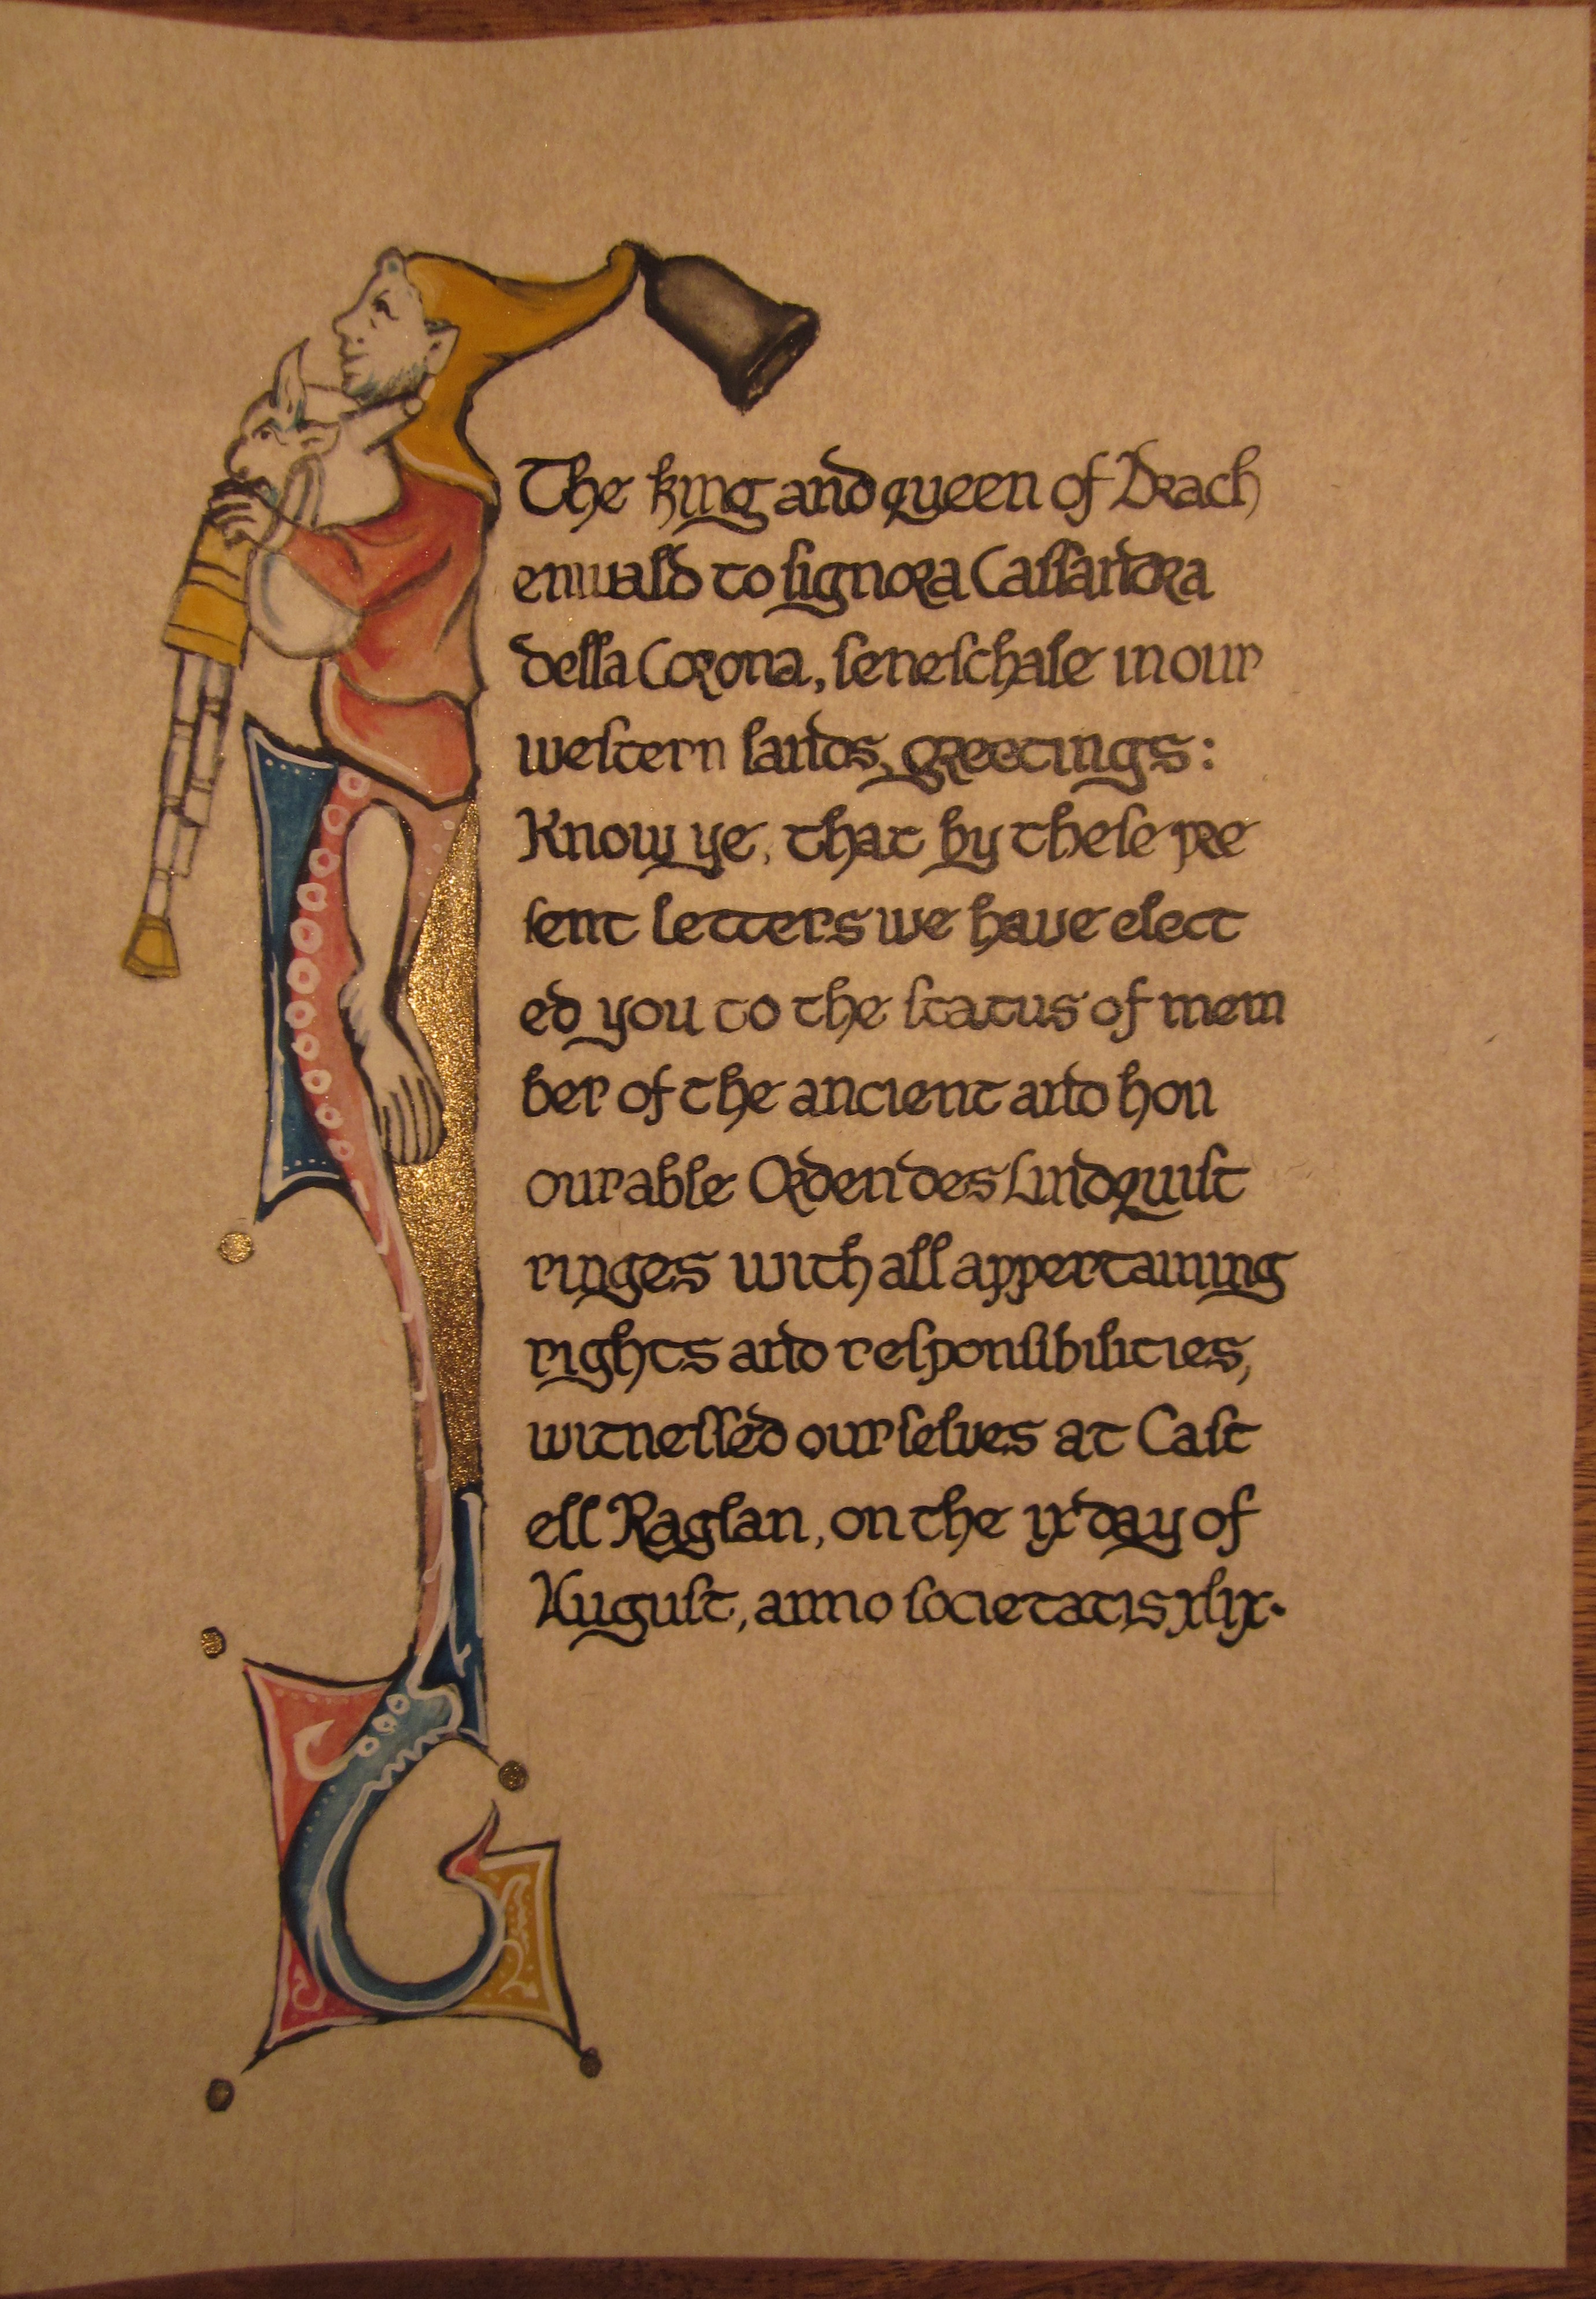 The king and queen of Drach
enwald to signora Cassandra
della Corona, seneschale in our
western lands, greetings:
Know ye, that by these pre
sent letters we have elect
ed you to the status of mem
ber of the ancient and hon
ourable Orden des Lindquist
ringes with all appertaining
rights and responsibilities,
witnessed ourselves at Cast
ell Raglan, on the ix day of
August, anno societatis xlix.